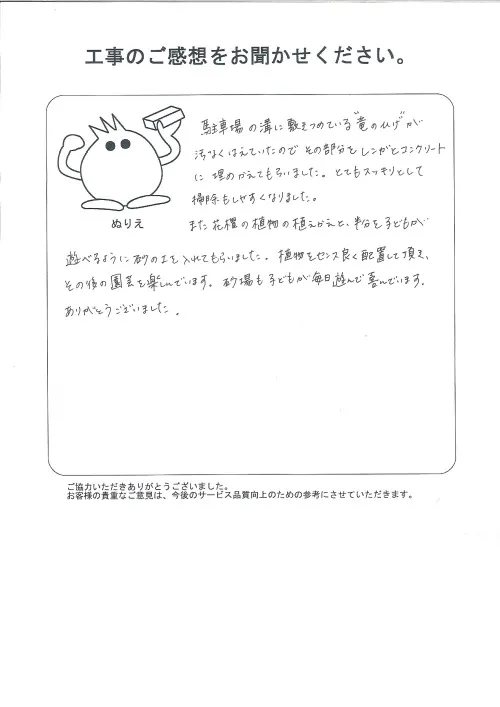 工事のご感想をお聞かせください。
駐車場の溝に敷きつめている"竜のひげ"が
汚なくはえていたのでその部分をレンガとコンクリート
に埋めかえてもらいました。とてもスッキリとして
掃除もしやすくなりました。
ぬりえ
また花檀の植物の植えかえと、半分を子どもが
遊べるように砂の土を入れてもらいました。植物をセンス良く配置して頂き、
その後の園芸を楽しんでいます。砂場も子どもが毎日遊んで喜んでいます。
ありがとうございました。
ご協力いただきありがとうございました。
お客様の貴重なご意見は、今後のサービス品質向上のための参考にさせていただきます。